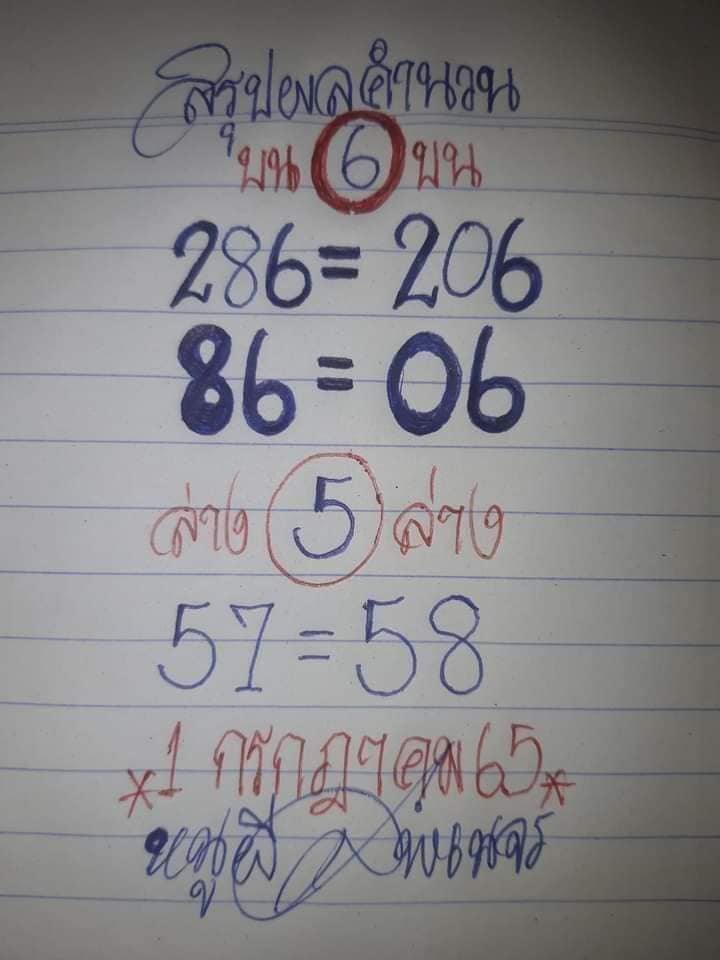 สรุปผลคำนวน
บน 6 บน
286 = 206
86 = 06
ล่าง 5 ล่าง
57 = 58
*1 กรกฎาคม 65*
หนูผี